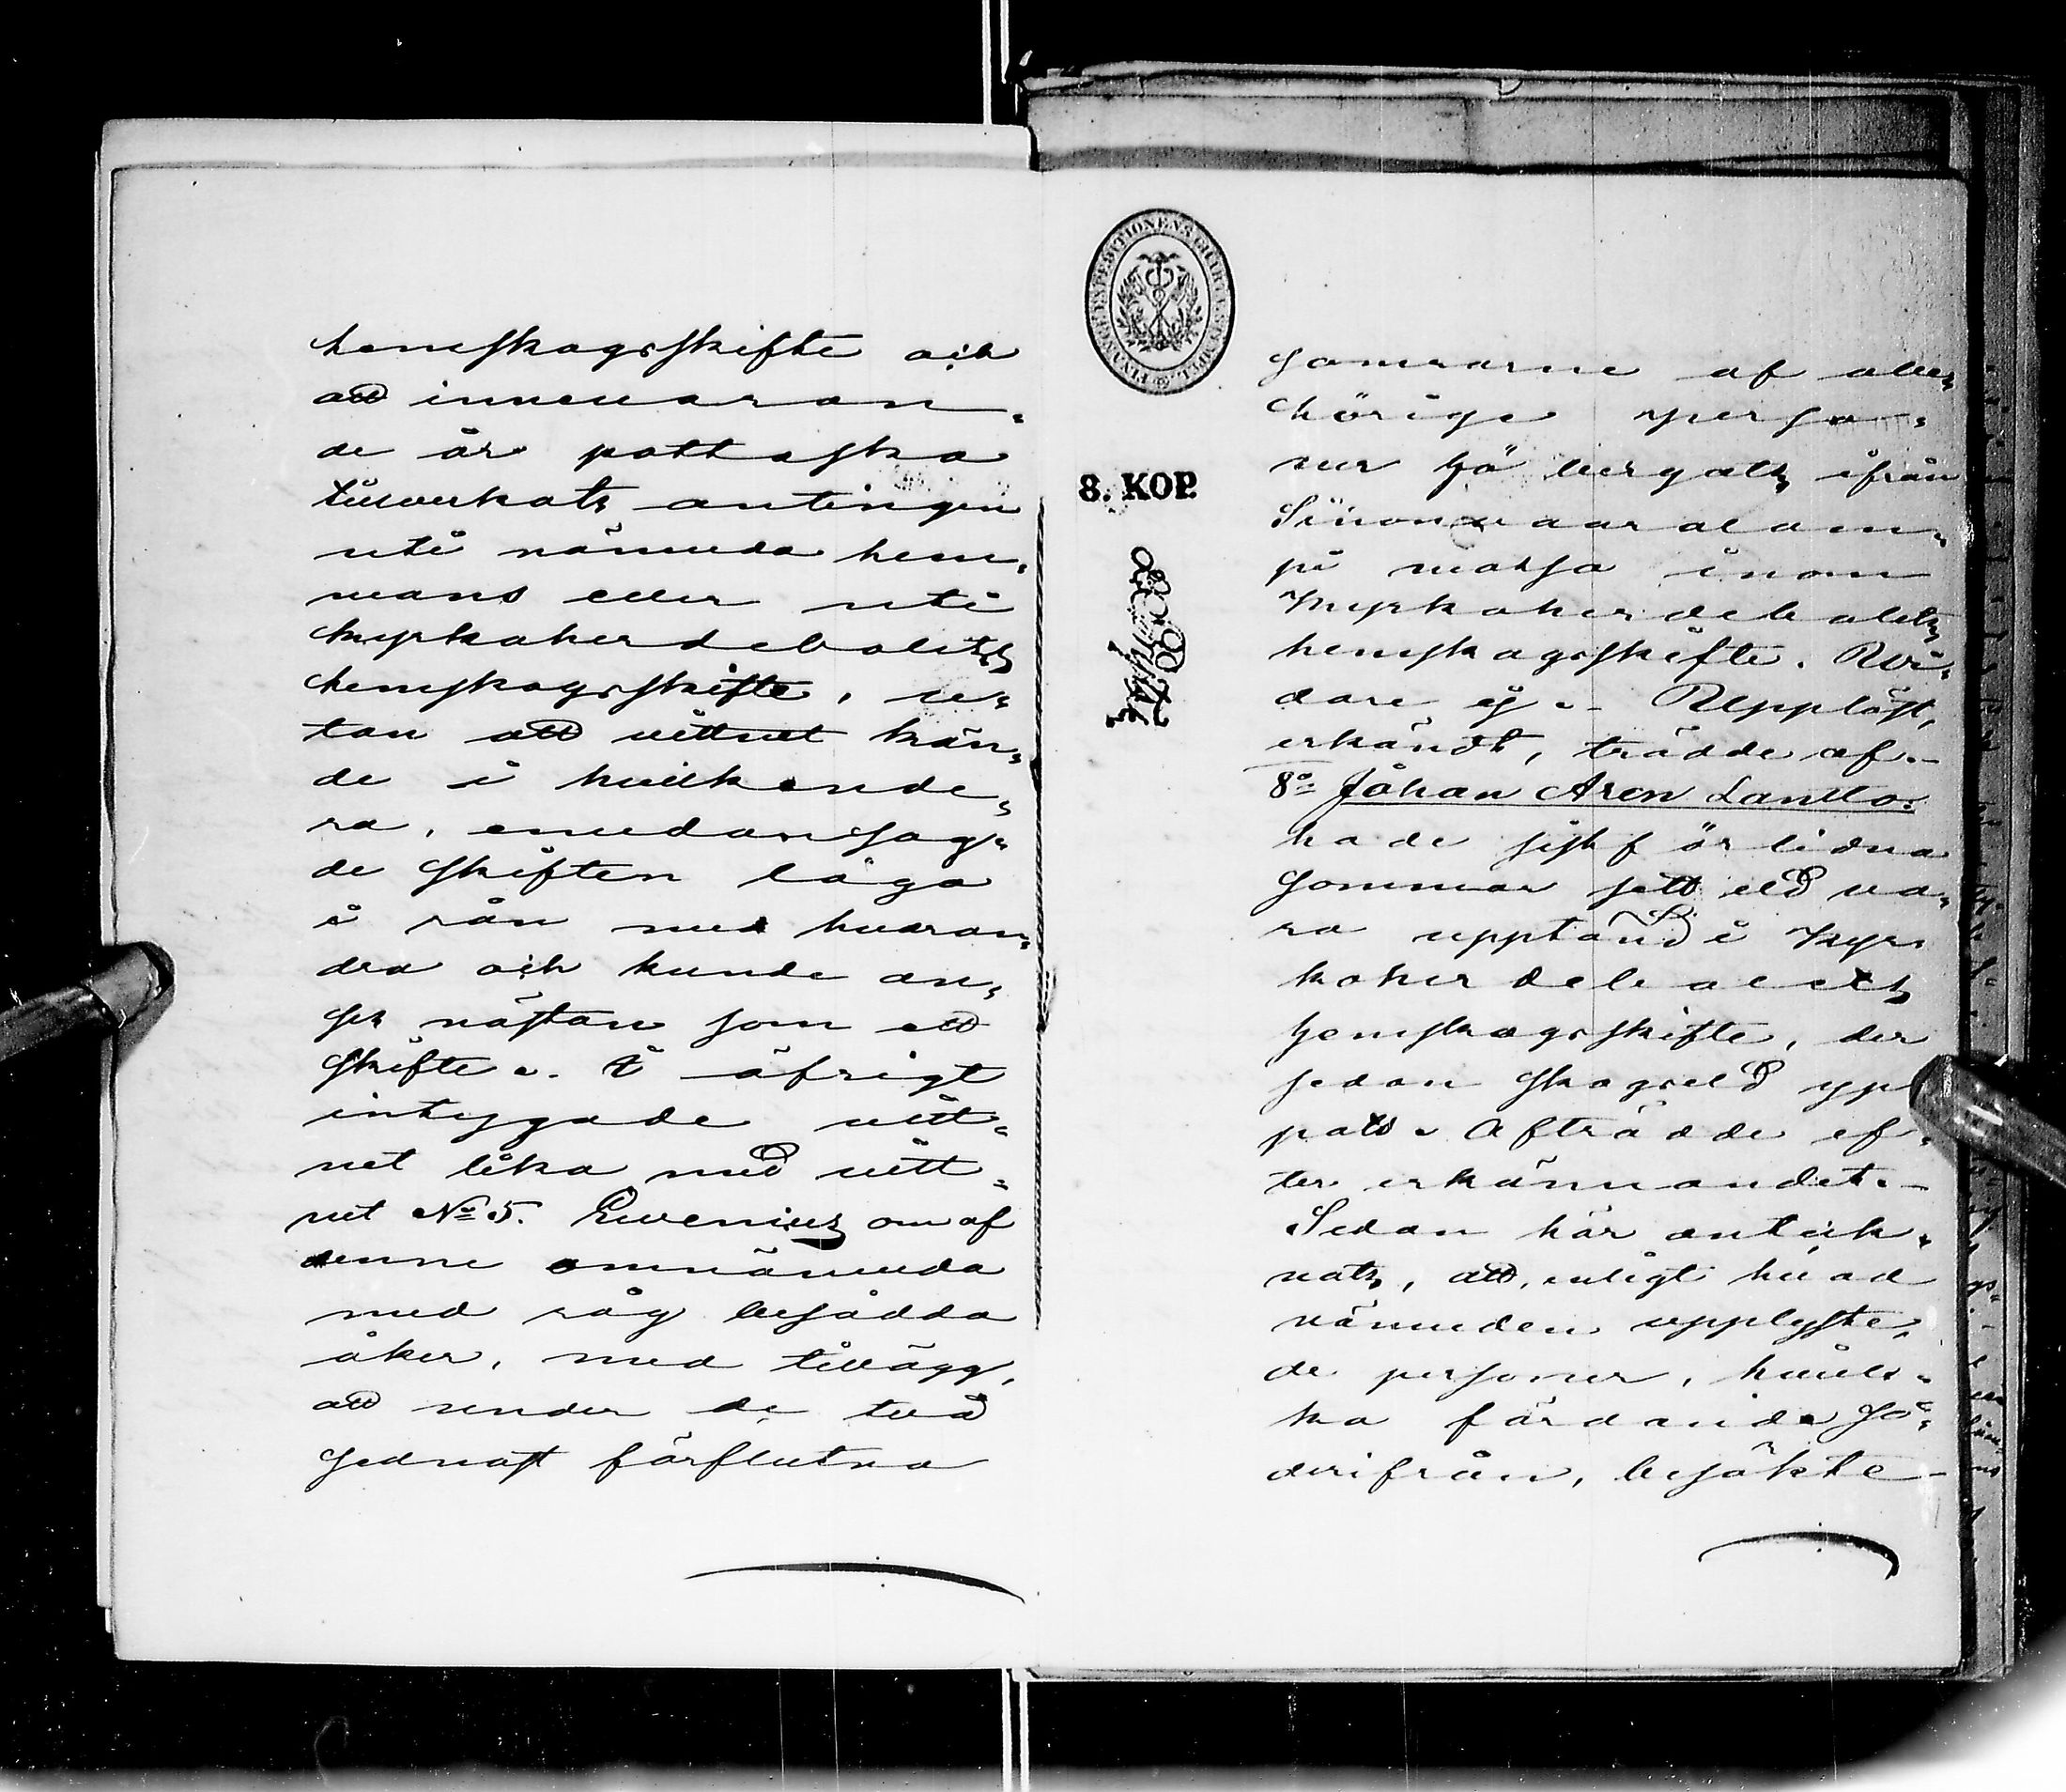 hemskogsskifte och
att innevaran-
de år pottaska
tillverkats antingen
uti nämnda hem-
mans eller uti
Kyrkoherdebolets
hemskogsskifte, u-
tan att vittnet kän-
de i hvilkende-
ra, emedan sag-
de skiften låga
i rån med hvaran-
dra och kunde an-
ses nästan som ett
skifte. I öfrigt
intygade vitt-
net lika med vitt-
net No 5. Evenius om af
denne omnämnda
med råg besådda
åker, med tillägg,
att under de två
sednast förflutna
FINANCE EXPEDITIONENS CHARTÆ STEMPEL.
8. KOP.
somrarne af obe-
hörige perso-
ner hö bergats ifrån
lam-
pi
inom
Kyrkoherdebolets
hemskogsskifte. Wi-
dare ej. Uppläst,
erkändt, trädde af.-
8o Johan Aron Lantto.
hade sistförlidna
sommar sett eld va-
ra upptänd i Kyr-
koherdebolets
hemskogsskifte, der
sedan skogseld yp-
pats. Afträdde ef-
ter erkännandet.-
Sedan här anteck-
nats, att, enligt hvad
nämnden upplyste,
de personer, hvil-
ka färdande sö-
derifrån, besökte